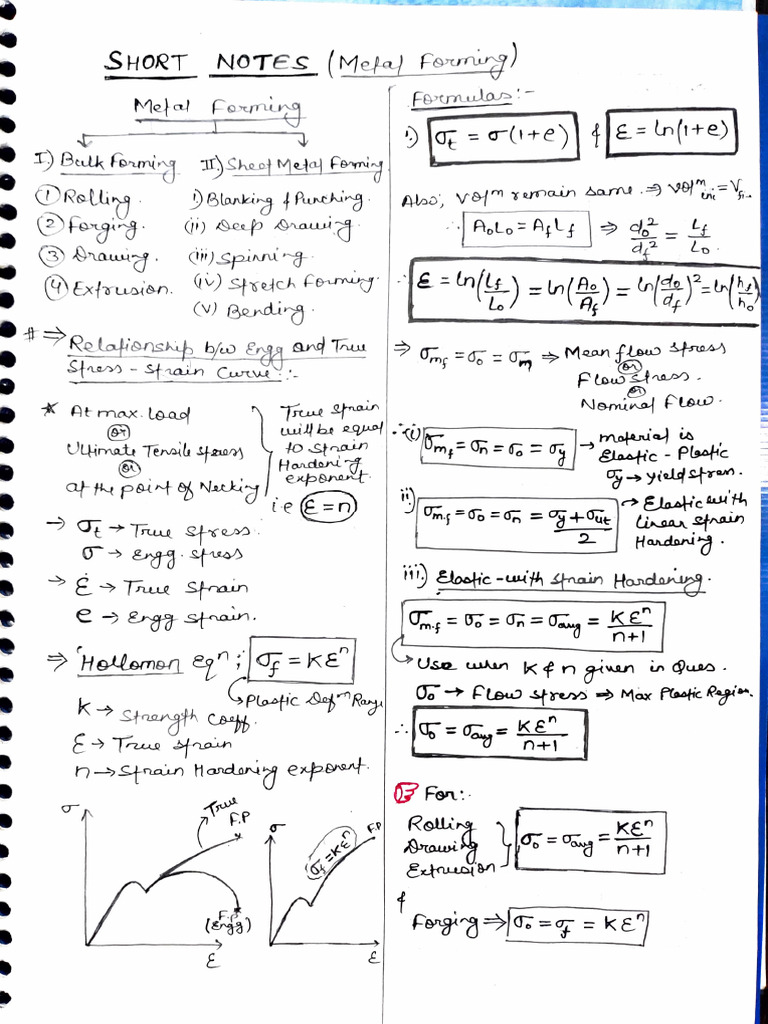 SHORT NOTES (Metal Forming)
Metal Forming
I.) Bulk Forming
① Rolling.
② Forging.
③ Drawing.
④ Extrusion.
II.) Sheet Metal Forming
i) Blanking & Punching.
(ii) Deep Drawing.
(iii) Spinning.
(iv) Stretch Forming.
(v) Bending.
# ⇒ Relationship b/w Engg and True
Stress - Strain Curve:-
* At max. load
or
Ultimate Tensile stress
or
at the point of Necking
True strain
will be equal
to strain
Hardening
exponent.
i.e ε = n
→ σt → True stress.
σ → Engg. stress
→ ε → True strain
e → Engg strain.
⇒ 'Hollomon Eqn; σf = Kεⁿ
→ Plastic Defm Range
K → Strength Coeff.
ε → True strain
n → Strain Hardening exponent.
σ
True
F.P
F.P
(Engg)
ε
σ
σf = Kεⁿ
F.P
ε
Formulas:-
i) σt = σ(1+e) & ε = ln(1+e)
Also; Volm remain same. ⇒ Volm ini = Vfi..
∴ A₀L₀ = AfLf ⇒ d₀²/df² = Lf/L₀
∴ ε = ln(Lf/L₀) = ln(A₀/Af) = ln(d₀/df)² = ln(hf/h₀
⇒ σmf = σ₀ = σm ⇒ Mean flow stress
or
Flow stress.
or
Nominal Flow.
∴ (i) σmf = σn = σ₀ = σy → material is
Elastic - Plastic
σy → yield stren.
ii) σm.f = σ₀ = σn = (σy + σut)/2 → Elastic with
linear strain
Hardening.
iii.) Elastic - with strain Hardening.
σm.f = σ₀ = σn = σavg = Kεⁿ/(n+1)
→ Use when K & n given in Ques.
σ₀ → Flow stress ⇒ Max Plastic Region.
∴ σ₀ = σavg = Kεⁿ/(n+1)
For:.
Rolling
Drawing
Extrusion
σ₀ = σavg = Kεⁿ/(n+1)
&
Forging ⇒ σ₀ = σf = Kεⁿ